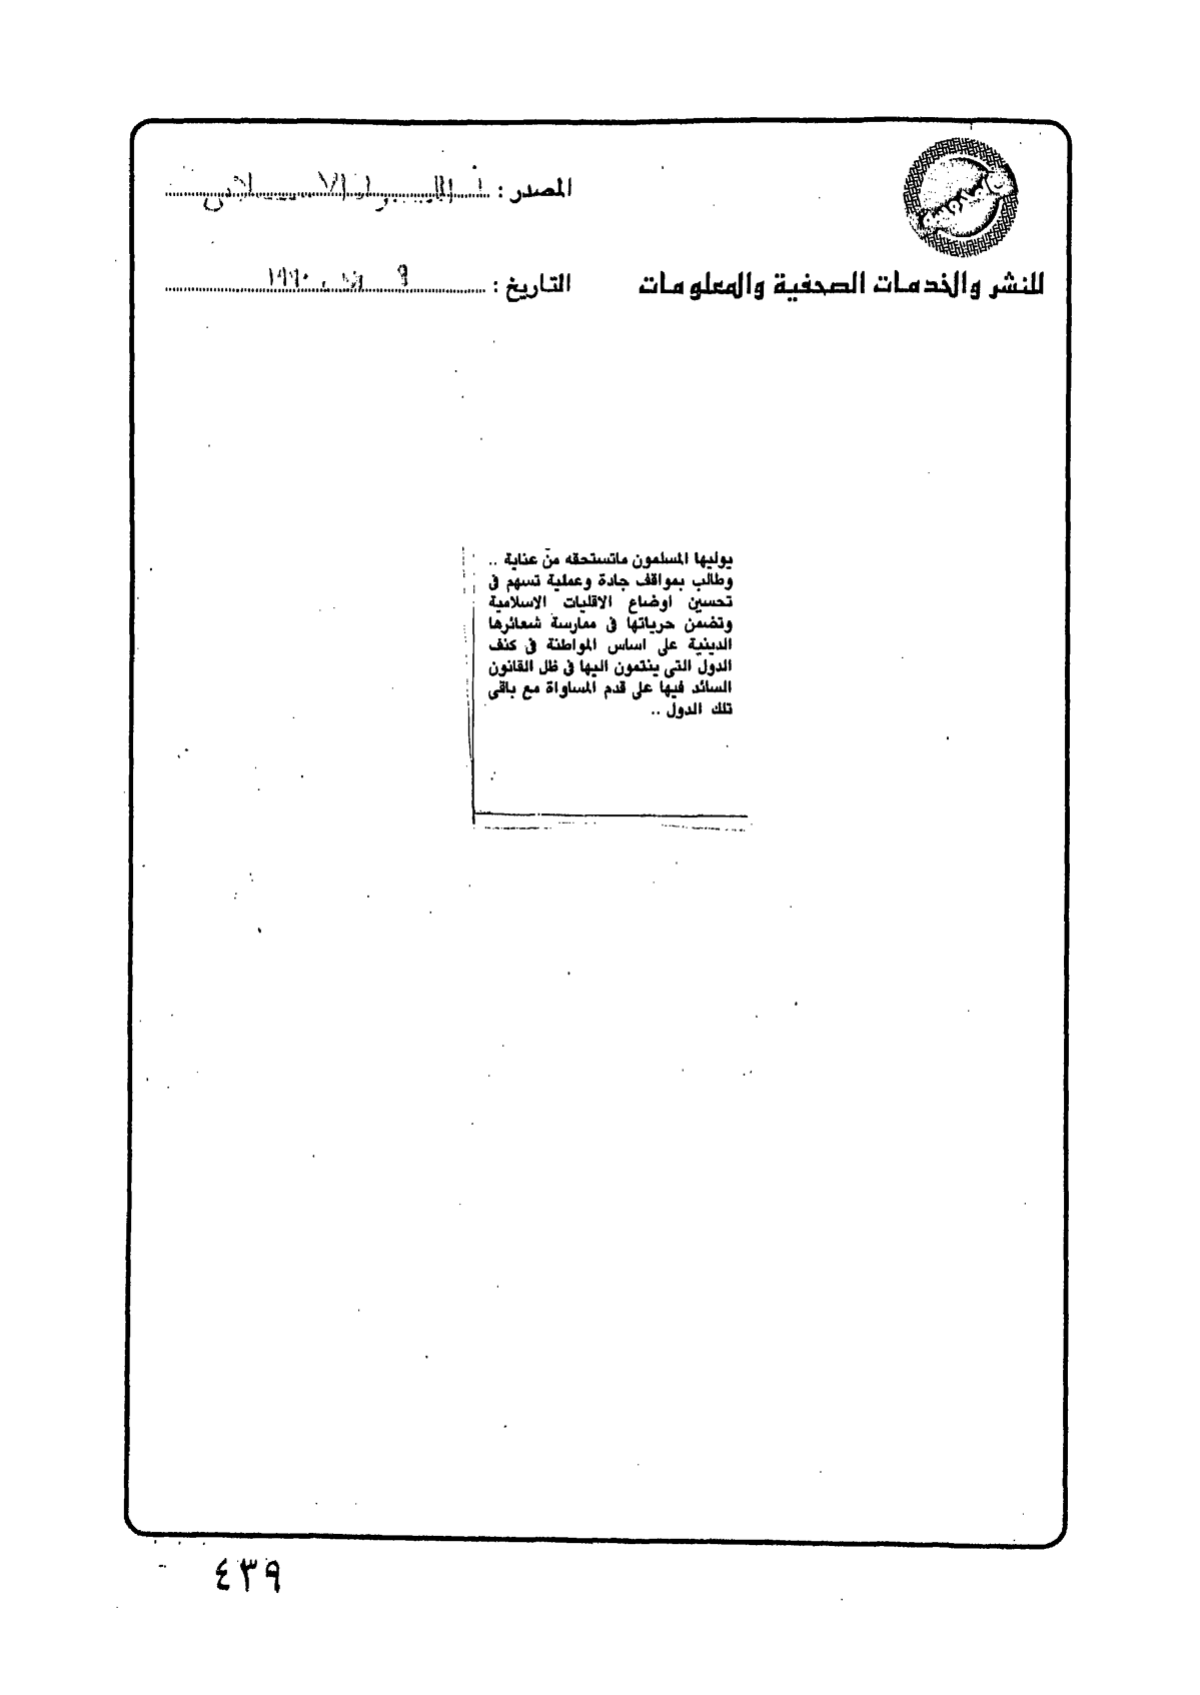 المصدر :
للنشر والخدمات الصحفية والمعلومات
التاريخ : ٩ ١٩٩٠
يوليها المسلمون ماتستحقه من عناية ..
وطالب بمواقف جادة وعملية تسهم فى
تحسين اوضاع الاقليات الاسلامية
وتضمن حرياتها فى ممارسة شعائرها
الدينية على اساس المواطنة فى كنف
الدول التى ينتمون اليها فى ظل القانون
السائد فيها على قدم المساواة مع باقى
تلك الدول ..
٤٣٩